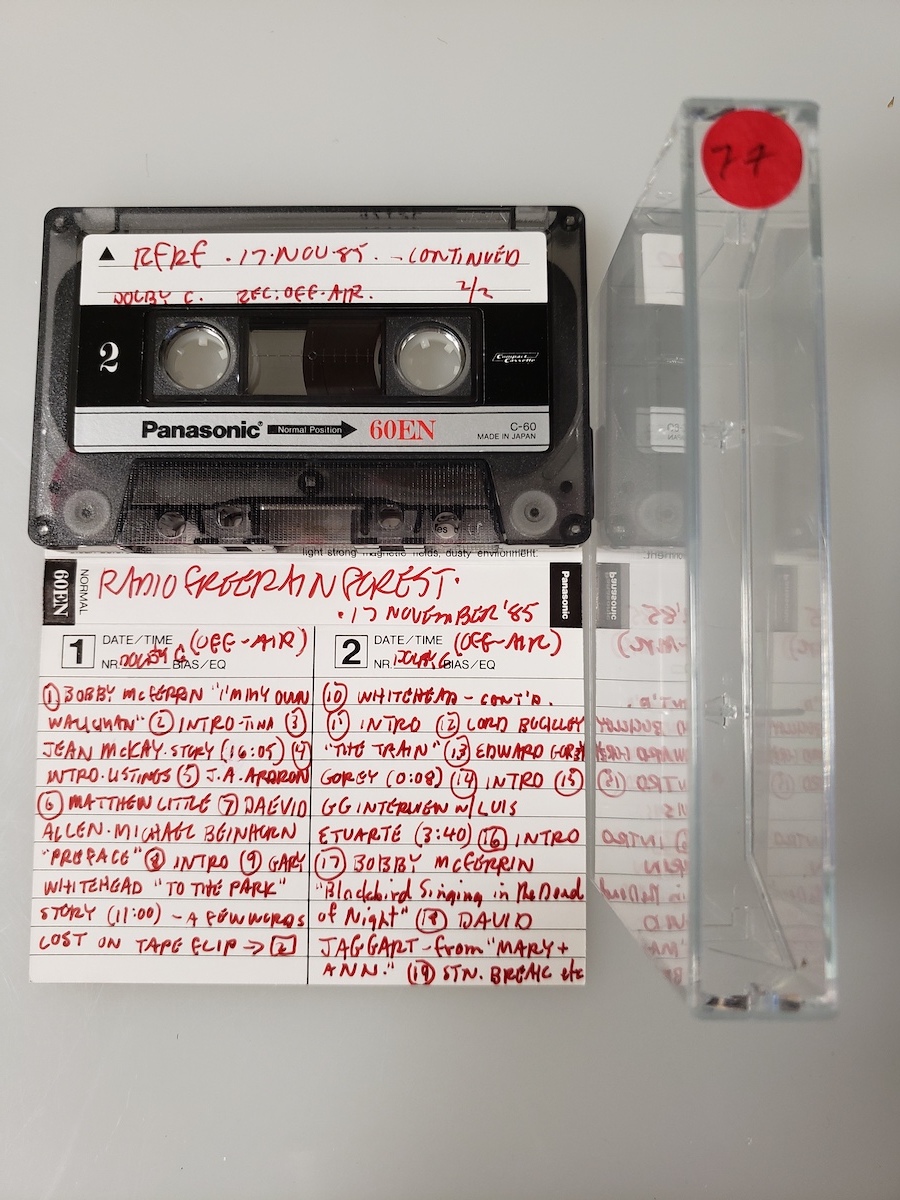 74
▲ RFRF · 17·NOV·85 · - CONTINUED
DOLBY C. REC: OFF-AIR. 2/2
2
Compact Cassette
Panasonic Normal Position 60EN
C-60
MADE IN JAPAN
light strong magnetic fields, dusty environment.
60EN NORMAL
RADIO FREE RAINFOREST·
· 17 NOVEMBER '85
Panasonic
1 DATE/TIME (OFF-AIR)
NR DOLBY C BIAS/EQ
① BOBBY McFERRIN "I'M MY OWN
WALKMAN" ② INTRO-TINA ③
JEAN McKAY·STORY (16:05) ④
INTRO·LISTINGS ⑤ J.A. ARDRON
⑥ MATTHEW LITTLE ⑦ DAEVID
ALLEN·MICHAEL BEINHORN
"PREFACE" ⑧ INTRO ⑨ GARY
WHITEHEAD "TO THE PARK"
STORY (11:00) - A FEW WORDS
LOST ON TAPE FLIP → 2
2 DATE/TIME (OFF-AIR)
NR. DOLBY C BIAS/EQ
⑩ WHITEHEAD - CONT'D.
⑪ INTRO ⑫ LORD BUCKLEY
"THE TRAIN" ⑬ EDWARD GOREY
GOREY (0:08) ⑭ INTRO ⑮
GG INTERVIEW W/ LUIS
ETUARTE (3:40) ⑯ INTRO
⑰ BOBBY McFERRIN
"Blackbird Singing in the Dead
of Night" ⑱ DAVID
JAGGART - from "MARY +
ANN." ⑲ STN. BREAK etc